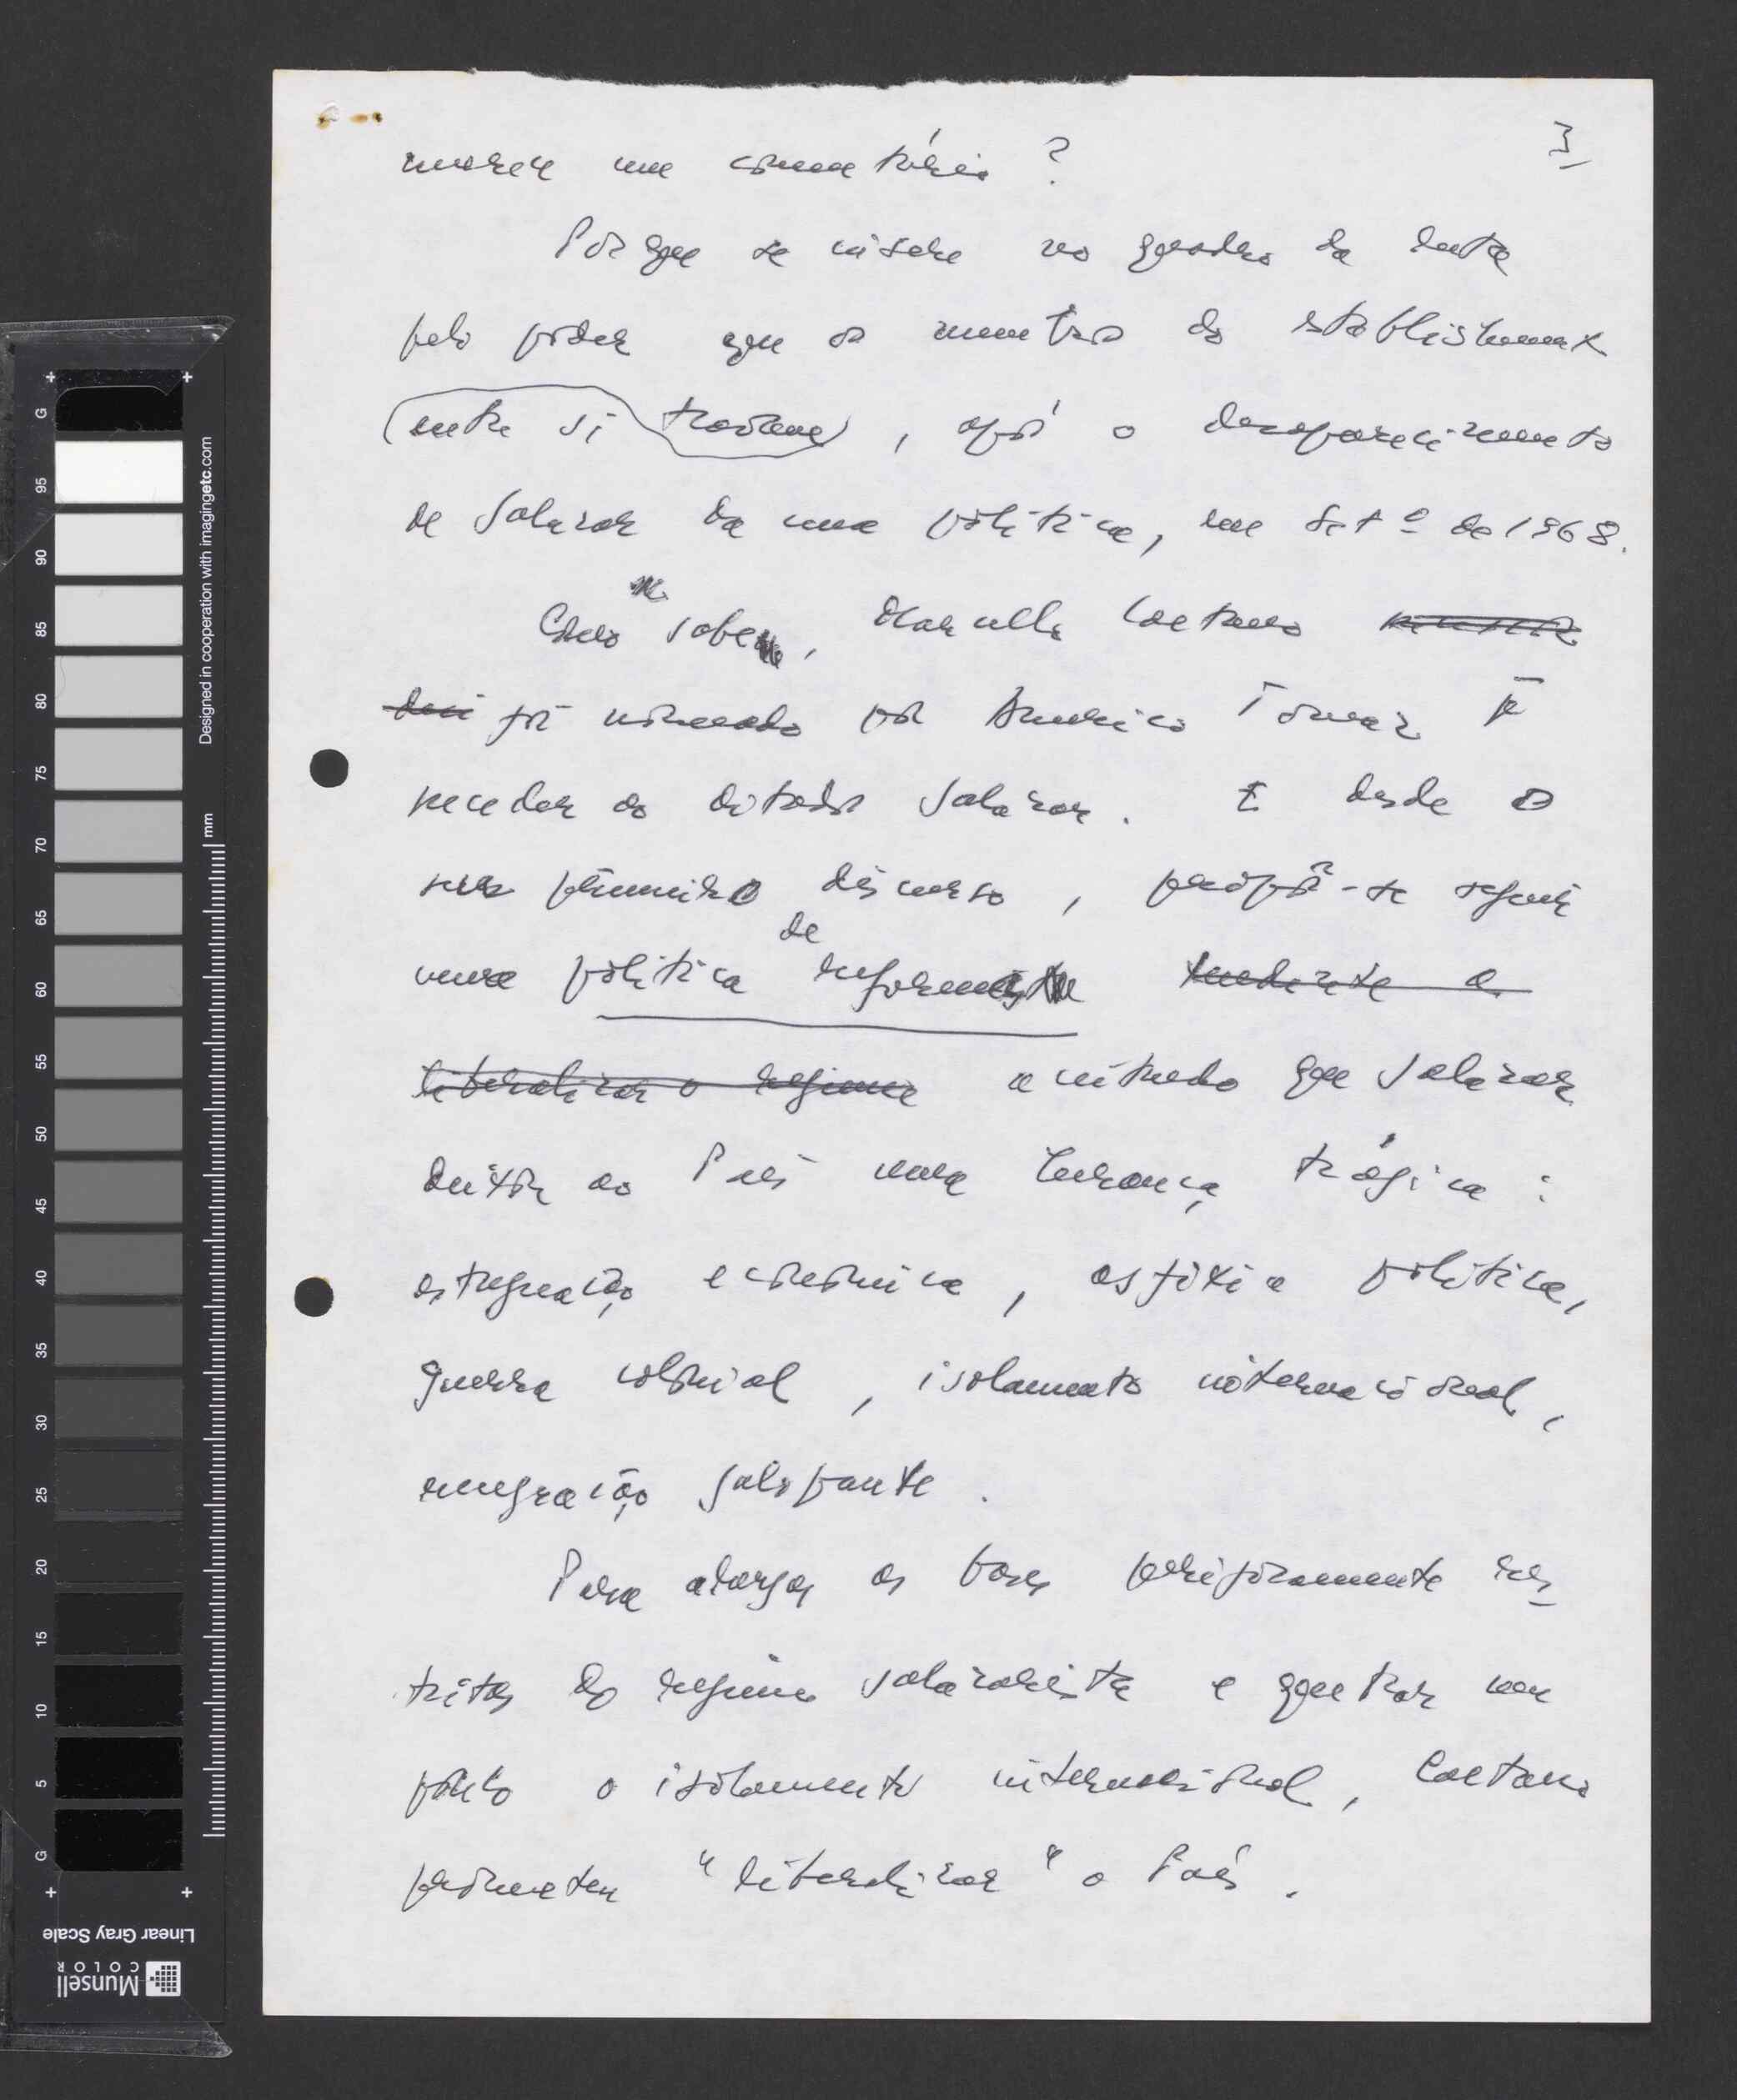 3
merece um comentário?
Porque se insere no quadro da luta
pelo poder que os membros do establishment
entre si travam, após o desaparecimento
de Salazar da cena política, em Set.º de 1968.
Como se sabe, Marcello Caetano
foi nomeado por Américo Tomaz p.ª
suceder ao ditador Salazar. E desde o
seu primeiro discurso, propôs-se seguir
uma política de reformas tendente a
liberalizar o regime Salazar
deixou ao País uma herança trágica:
estagnação económica, asfixia política,
guerra colonial, isolamento internacional,
emigração galopante.
Para alargar as bases perigosamente res
tritas do regime salazarista e quebrar um
pouco o isolamento internacional, Caetano
prometeu "liberalizar" o País.
Designed in cooperation with imagingetc.com
mm
G 95 90 85 80 75 70 65 60 55 50 45 40 35 30 25 20 15 10 5 G
Linear Gray Scale
Munsell
COLOR